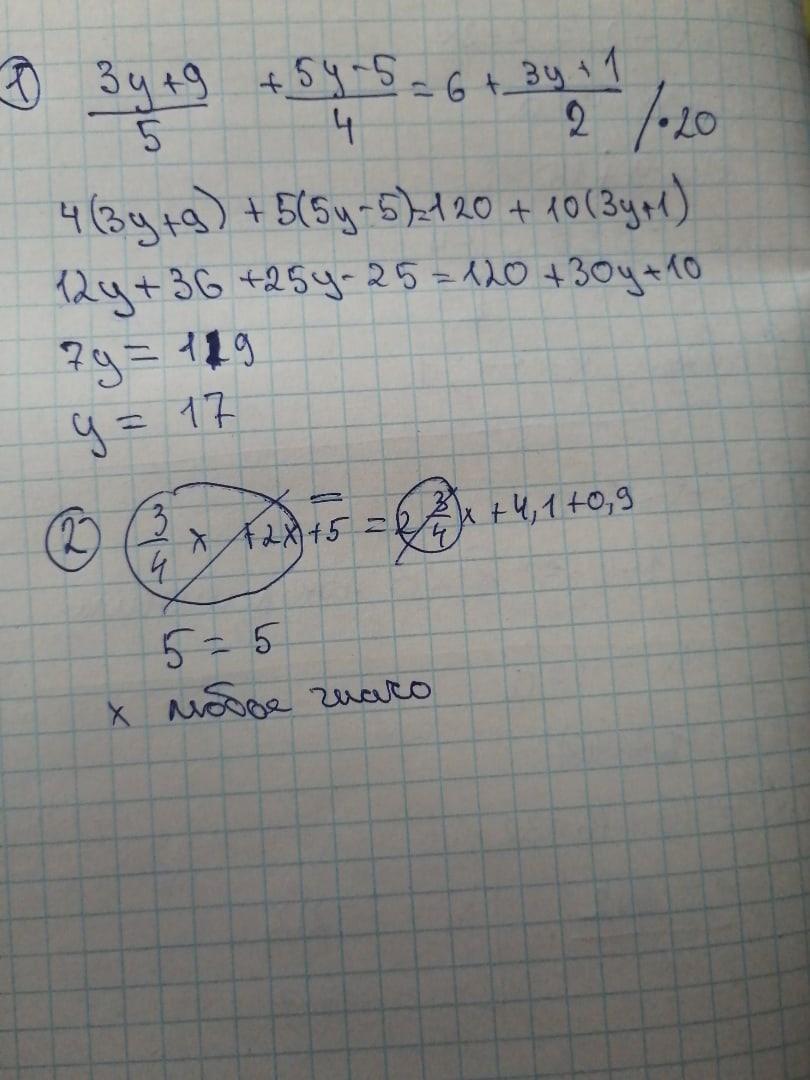 1) (3y+9)/5 + (5y-5)/4 = 6 + (3y+1)/2 /·20
4(3y+9) + 5(5y-5)=120 + 10(3y+1)
12y+36 +25y-25 =120 +30y+10
7y = 119
y = 17
2) 3/4 x +2x +5 = 2 3/4 x +4,1+0,9
5 = 5
x любое число